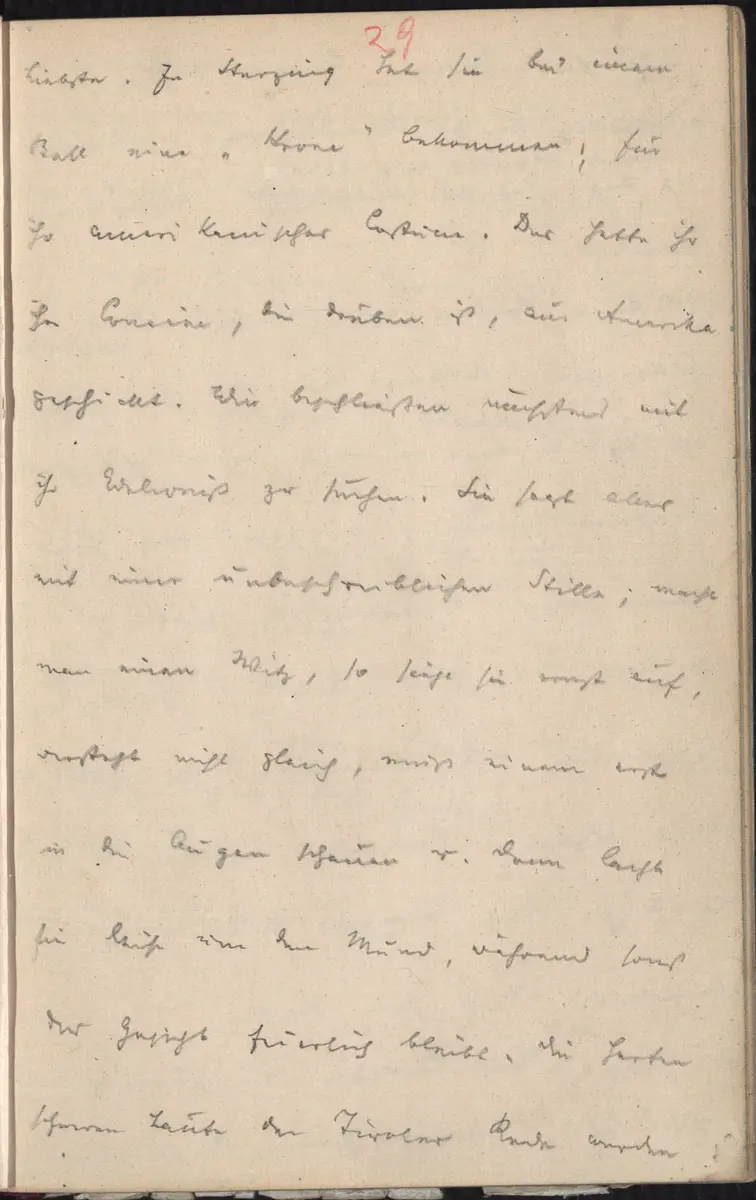 29
Liebste. In Sterzing hat sie bei einem
Ball eine „Krone" bekommen; für
ihr amerikanisches Costüm. Das hatte ihr
ihre Cousine, die drüben ist, aus Amerika
geschickt. Wir beschließen nächstens mit
ihr Edelweiß zu suchen. Sie sagt alles
mit einer unbeschreiblichen Stille; macht
man einen Witz, so sieht sie ernst auf,
versteht nicht gleich, muß einem erst
in die Augen schauen u. dann lacht
sie leise um den Mund, während sonst
das Gesicht feierlich bleibt. Die harten
schweren Laute der Tiroler Rede werden